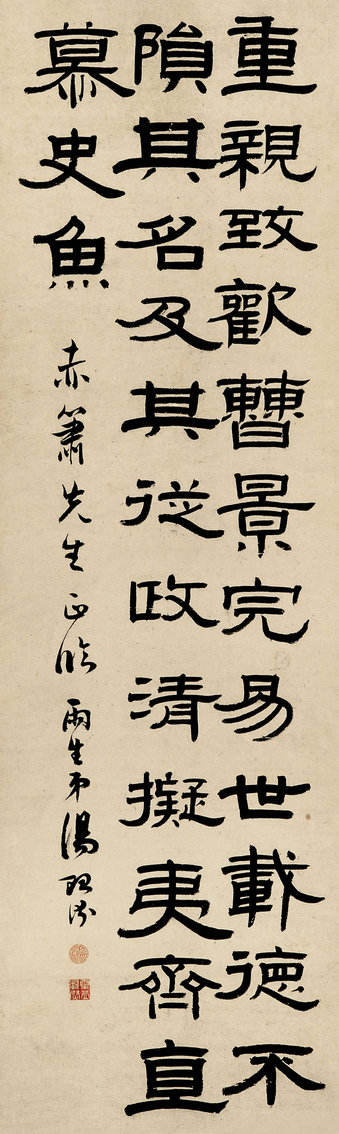 重親致歡曹景完易世載德不
隕其名及其從政清擬夷齊直
慕史魚
赤簫先生正临 雨生弟湯貽汾